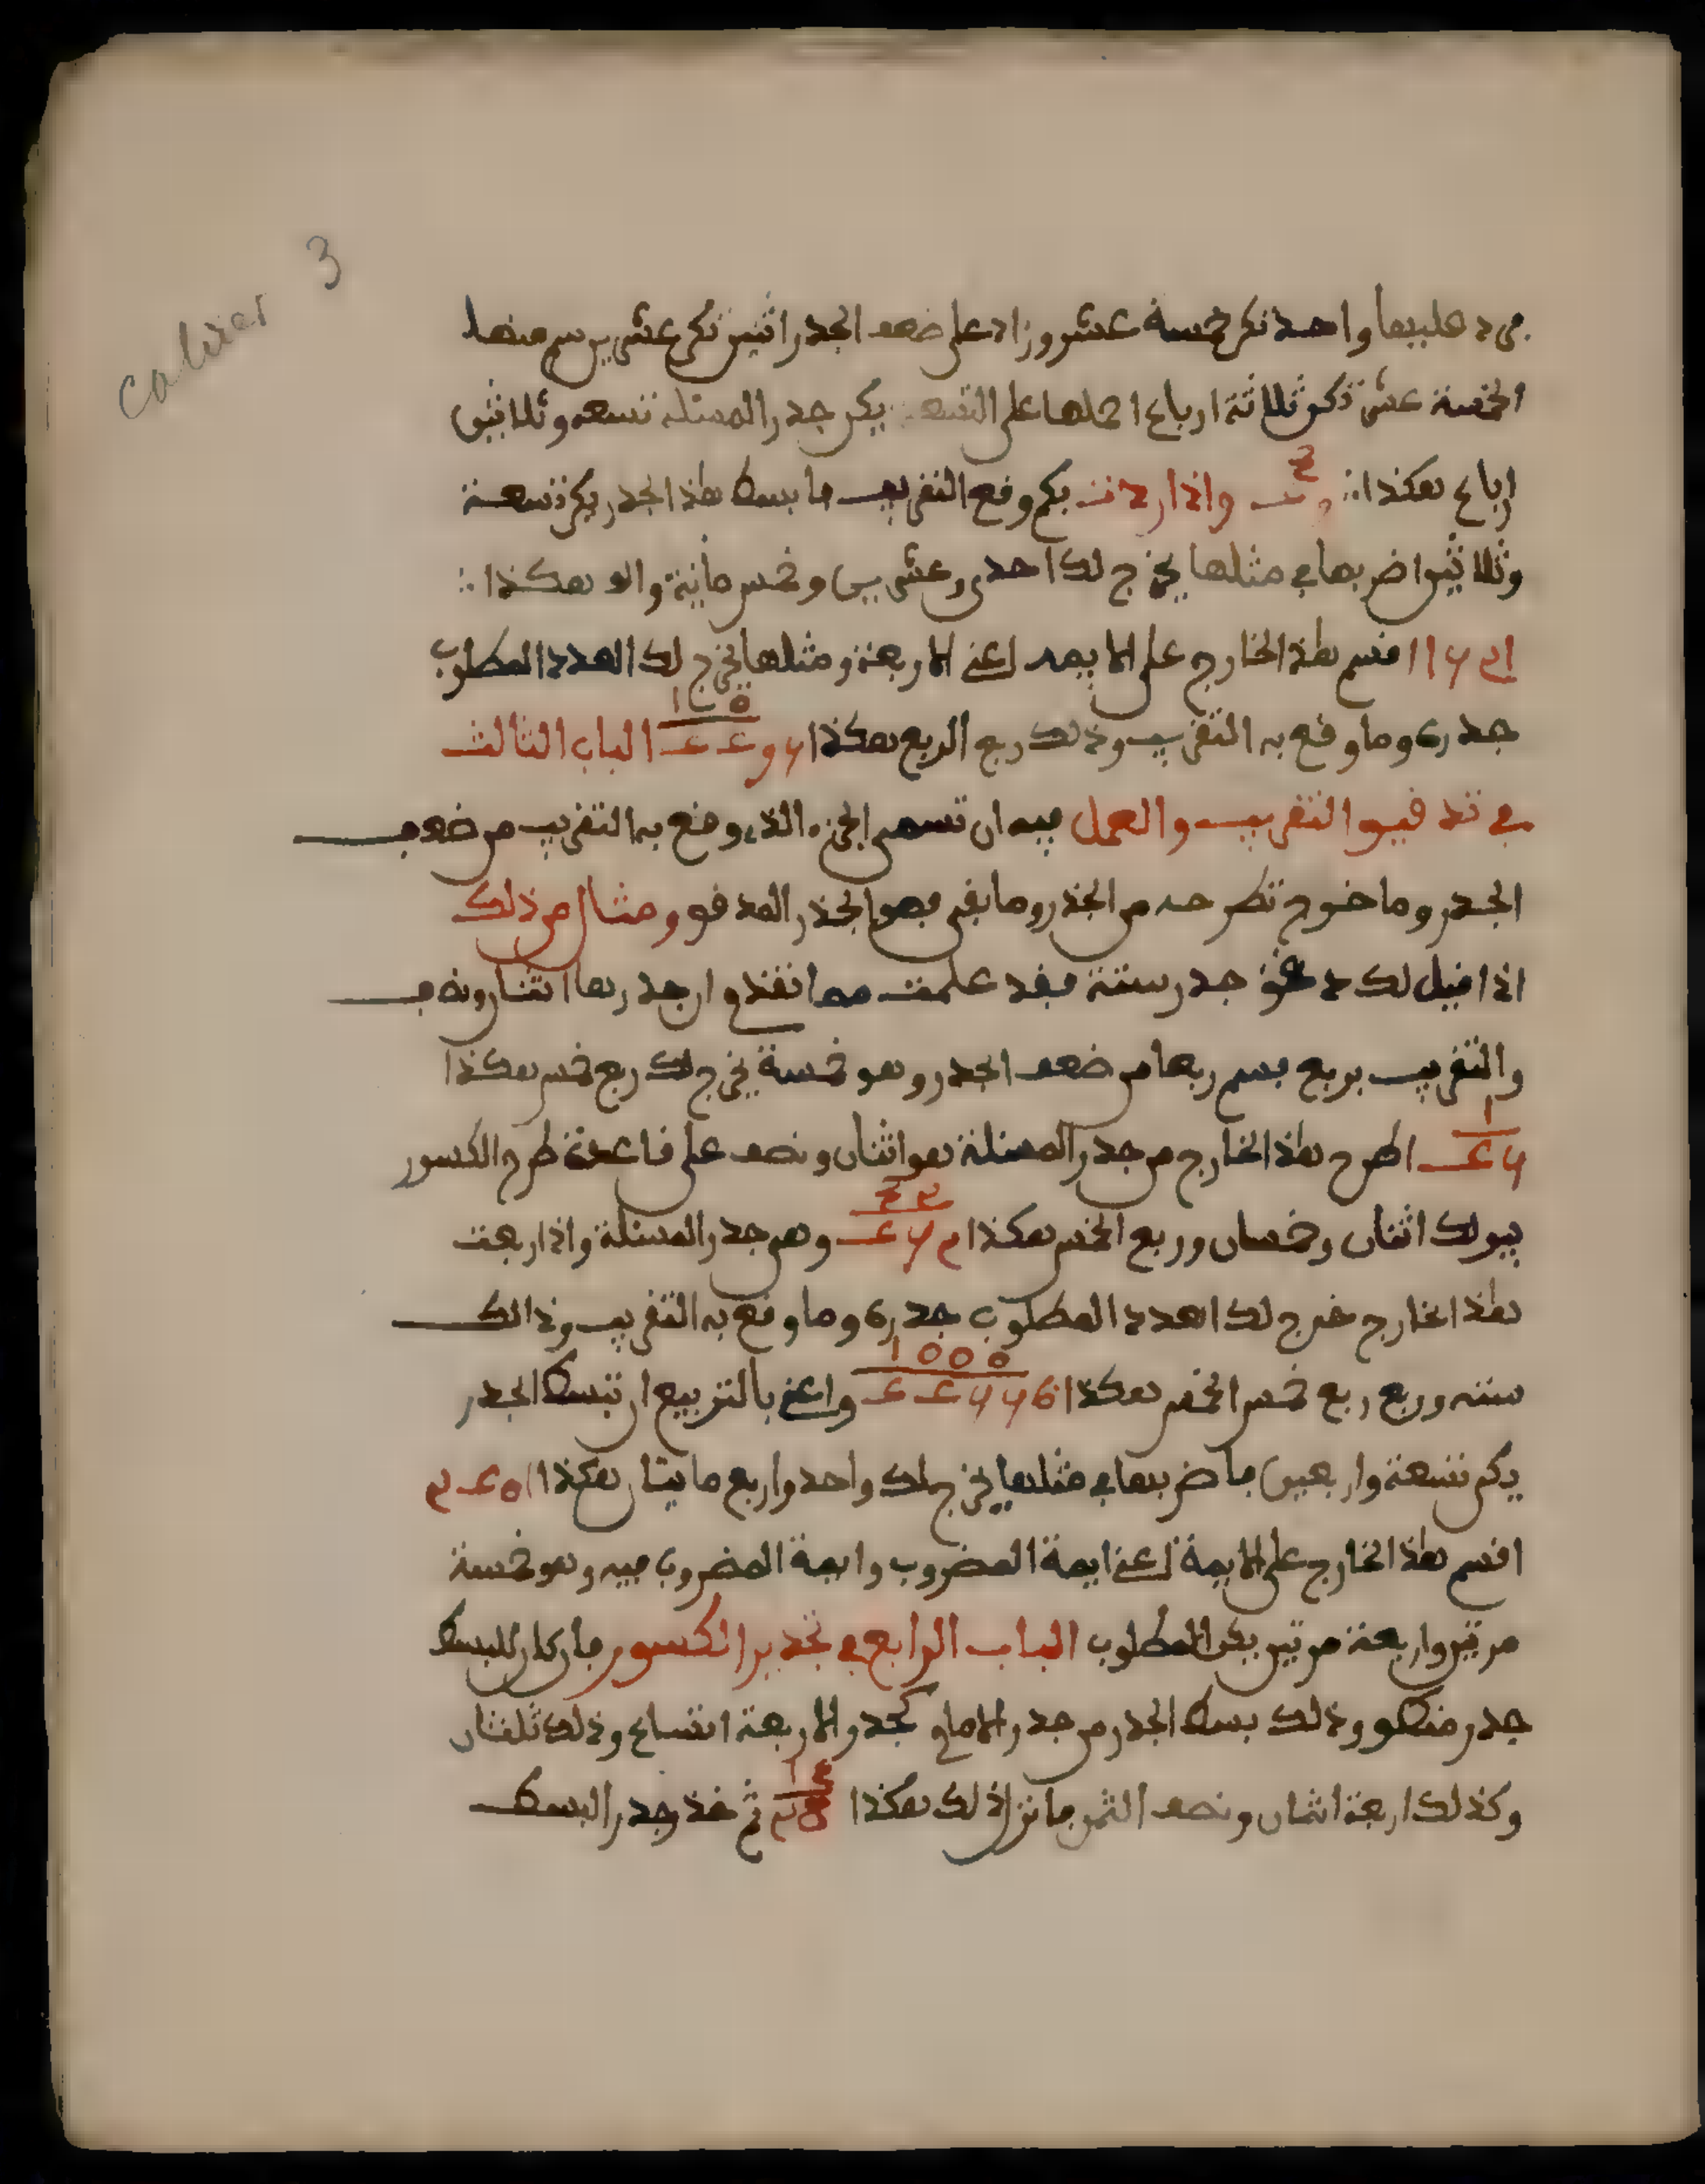 cahier 3
فزد عليها واحد تكن خمسة عشر وزاد على ضعف الجذر اثنين تكن عشرين سم منها
الخمسة عشر تكن ثلاثة ارباع احملها على التسعة يكن جذر المسئلة تسعه وثلاثة
ارباع هكذا واذا اردت بكم وقع التقريب فابسط هذا الجذر يكن تسعة
وثلاثين اضربها في مثلها يخرج لك احدى وعشرين وخمس مائة والف هكذا
1521 اقسم هذا الخارج على الايمه اعني الاربعة ومثلها يخرج لك العدد المطلوب
جذره وما وقع به التقريب وذلك ربع الربع هكذا الباب الثالث
في تدقيق التقريب والعمل فيه ان تسمي الجزء الذي وقع به التقريب من ضعف
الجذر وما خرج تطرحه من الجذر وما بقي فهو الجذر المدقق ومثال من ذلك
اذا قيل لك جذر ستة فقد علمت مما تقدم ان جذرها اثنان ونصف
والتقريب بربع فسم ربعها من ضعف الجذر وهو خمسة يخرج لك ربع خمس هكذا
1
54 اطرح هذا الخارج من جذر المسئلة هو اثنان ونصف على قاعدة طرح الكسور
يبق لك اثنان وخمسان وربع الخمس هكذا وهي جذر المسئلة واذا ربعت
هذا الخارج خرج لك العدد المطلوب جذره وما وقع به التقريب وذالك
سته وربع ربع خمس الخمس هكذا 1000 65544 واعني بالتربيع ان تبسط الجذر
يكن تسعة واربعين فاضربها في مثلها يخرج لك واحد واربع مائتان هكذا 1042
اقسم هذا الخارج على الايمة اعني ايمة المضروب وايمة المضروب فيه وهو خمسة
مرتين واربعة مرتين يكن المطلوب الباب الرابع في تجذير الكسور فان كان للبسط
جذر منطق وذلك بسط الجذر من جذر الامام كجذر الاربعة اتساع وذلك ثلثان
وكذلك اربعة اثمان ونصف الثمن فانزل ذلك هكذا ثم خذ جذر البسط